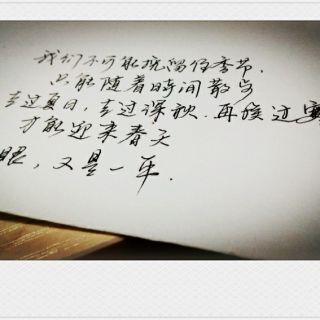 我们不可能挽留住季节,
只能随着時间散步
走过夏日,走过深秋.再候过寒
才能迎来春天
眼,又是一年.